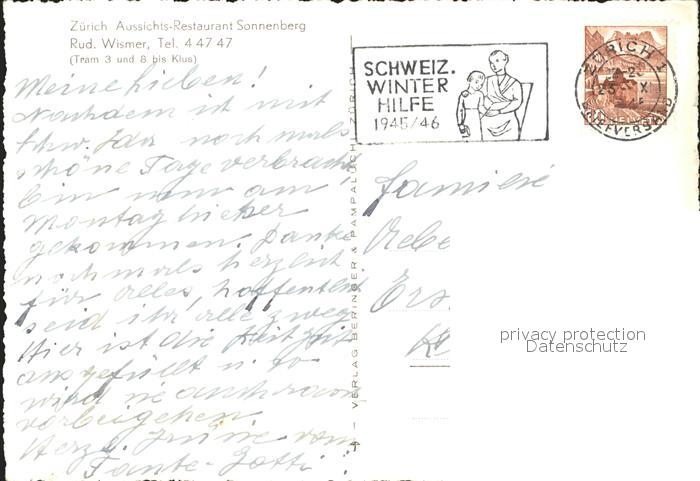 Zürich Aussichts-Restaurant Sonnenberg
Rud. Wismer, Tel. 4 47 47
(Tram 3 und 8 bis Klus)
Meine Lieben!
Nachdem ich mit
Schw. Ida noch mals
schöne Tage verbracht,
bin nun am
Montag hieher
gekommen. Danke
nochmals herzlich
für alles, hoffentlich
seid ihr alle zweg.
Hier ist die Zeit
ausgefüllt u. so
wird sie auch
vorbeigehen.
Herzl. Grüsse vom
Tante - Gotti
VERLAG BERINGER & PAMPALUCHI, ZÜRICH
SCHWEIZ.
WINTER
HILFE
1945/46
ZÜRICH 1
BRIEFVERSAND
HELVETIA
Familie
privacy protection
Datenschutz